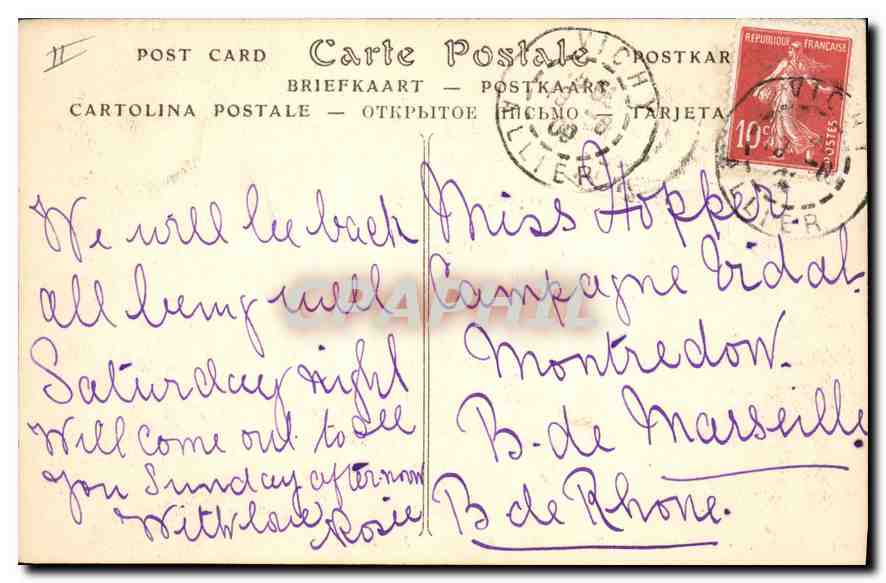 II
POST CARD Carte Postale POSTKAR
BRIEFKAART — POSTKAART —
CARTOLINA POSTALE — ОТКРЫТОЕ ПИСЬМО — TARJETA
VICHY
ALLIER
REPUBLIQUE FRANÇAISE
10c
POSTES
VICHY
ALLIER
We will be back
all being well
Saturday night
Will come out to see
you Sunday afternoon
With love
Rosie
Miss Hopper.
Campagne Vidal.
Montredon.
B. de Marseille
B de Rhone.
CPAPHIL